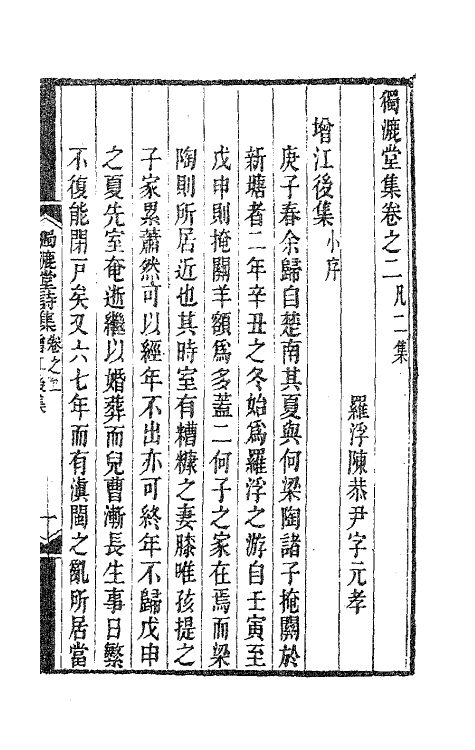 獨漉堂集卷之二凡二集
羅浮陳恭尹字元孝
增江後集小序
庚子春余歸自楚南其夏與何梁陶諸子掩關於
新塘者二年辛丑之冬始爲羅浮之游自壬寅至
戊申則掩關羊額爲多蓋二何子之家在焉而梁
陶則所居近也其時室有糟糠之妻膝唯孩提之
子家累蕭然可以經年不出亦可終年不歸戊申
之夏先室奄逝繼以婚葬而兒曹漸長生事日繁
不復能閉戸矣又六七年而有滇閩之亂所居當
獨漉堂詩集卷之二增江後集
一